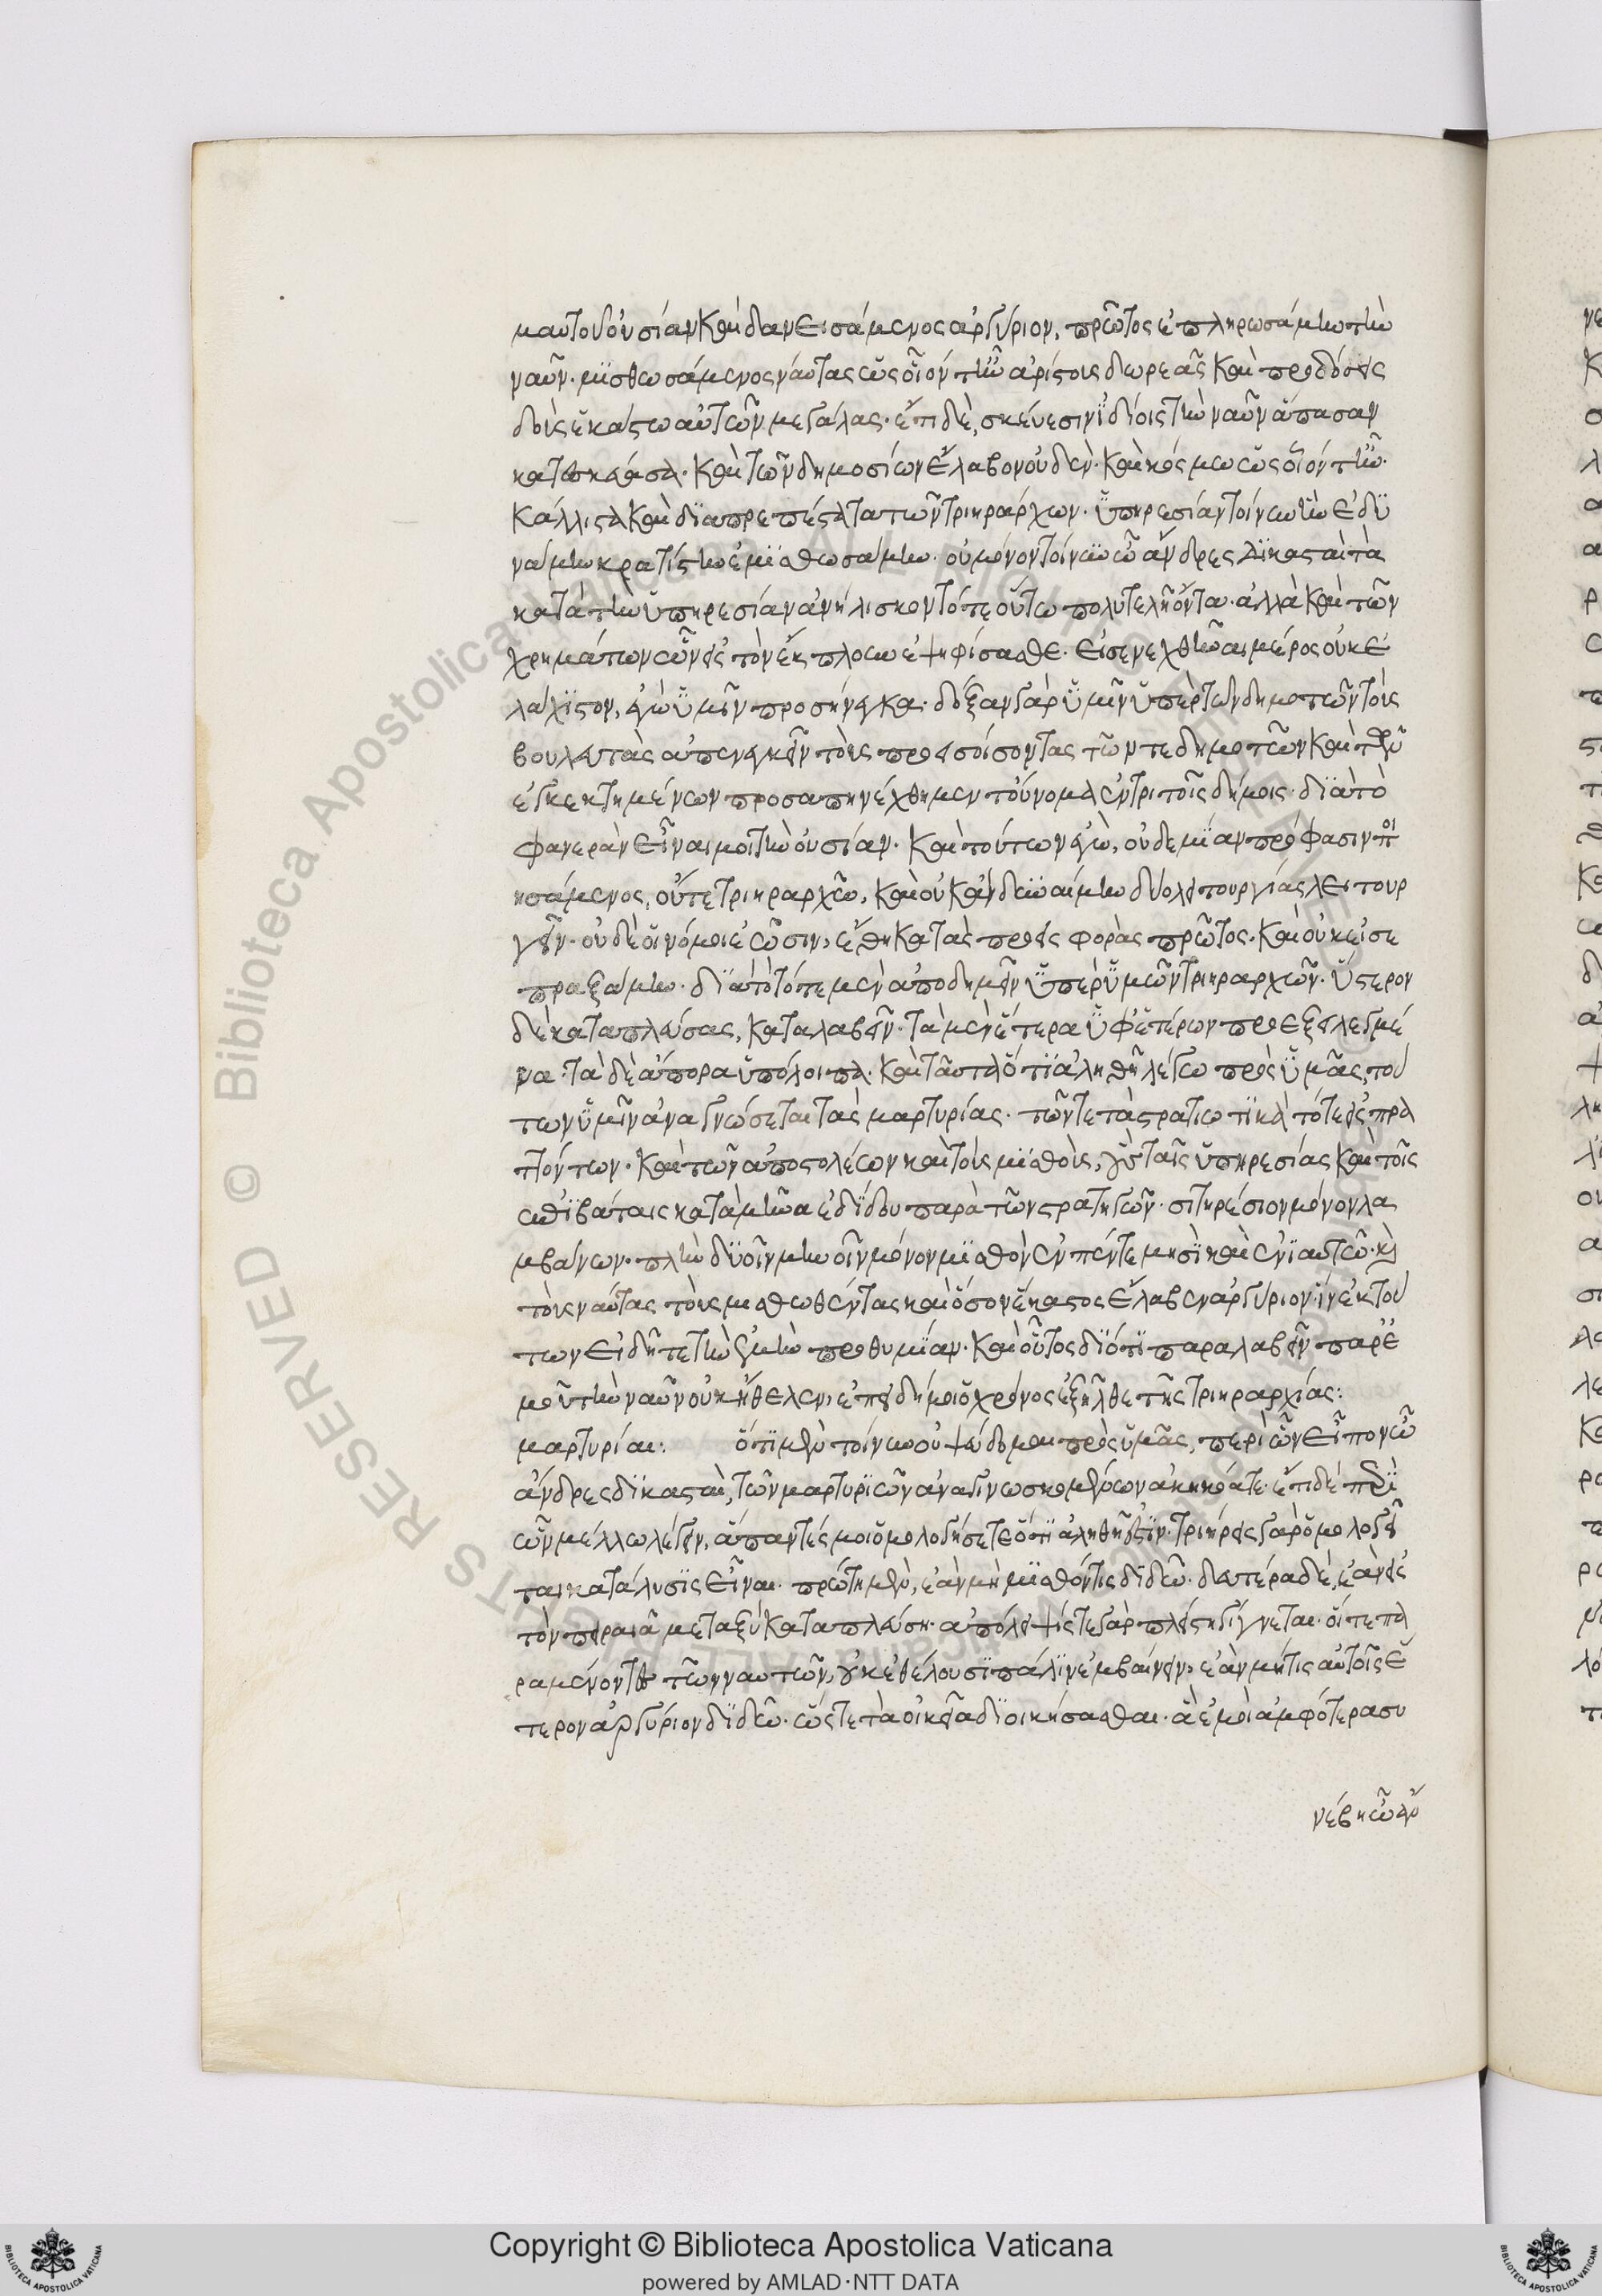 μαυτοῦ οὐσίαν καὶ δανεισάμενος ἀργύριον, πρῶτος ἐπληρωσάμην τὴν
ναῦν. μισθωσάμενος ναύτας ὡς οἷόν τ' ἦν ἀρίστους δωρεὰς καὶ προδόσεις
δοὺς ἑκάστῳ αὐτῶν μεγάλας. ἔτι δὲ, σκεύεσιν ἰδίοις τὴν ναῦν ἅπασαν
κατεσκεύασα. καὶ τῶν δημοσίων ἔλαβον οὐδέν. καὶ κόσμῳ ὡς οἷόν τ' ἦν.
κάλλιστα καὶ διαπρεπέστατα τῶν τριηράρχων. ὑπηρεσίαν τοίνυν ἣν ἐδυ
νάμην κρατίστην ἐμισθωσάμην. οὐ μόνον τοίνυν ὦ ἄνδρες δικασταὶ τὰ
κατὰ τὴν ὑπηρεσίαν ἀνήλισκον τότε οὕτω πολυτελῆ ὄντα. ἀλλὰ καὶ τῶν
χρημάτων ὧν εἰς τὸν ἔκπλουν ἐψηφίσασθε. εἰσενεχθῆναι μέρος οὐκ ἐ
λάχιστον, ἐγὼ ὑμῖν προσήνεγκα. δόξαν γὰρ ὑμῖν ὑπὲρ τῶν δημοτῶν τοὺς
βουλευτὰς ἀπενεγκεῖν τοὺς προεισοίσοντας τῶν τε δημοτῶν καὶ τῶν
ἐγκεκτημένων προσαπηνέχθη μεν τοὔνομα ἐν τριττοῖς δήμοις. διὰ τὸ
φανερὰν εἶναι μοι τὴν οὐσίαν. καὶ τούτων ἐγὼ, οὐδεμίαν πρόφασιν ποι
ησάμενος, οὔτε τριηραρχῶ, καὶ οὐκ ἂν δυναίμην δύο λειτουργίας λειτουρ
γεῖν. οὐδὲ οἱ νόμοι ἐῶσιν, ἔθηκα τὰς προεισφορὰς πρῶτος. καὶ οὐκ εἰσε
πραξάμην. διὰ τὸ τότε μὲν ἀποδημεῖν ὑπὲρ ὑμῶν τριηραρχῶν. ὕστερον
δὲ καταπλεύσας, καταλαβεῖν. τὰ μὲν ἕτερα ὑφ' ἑτέρων προεξειλεγμέ
να. τὰ δὲ ἄπορα ὑπόλοιπα. καὶ ταῦτα ὅτι ἀληθῆ λέγω πρὸς ὑμᾶς, τού
των ὑμῖν ἀναγνώσεται τὰς μαρτυρίας. τῶν τε τὰ στρατιωτικὰ τότε εἰσπρα
ττόντων. καὶ τῶν ἀποστολέων καὶ τοὺς μισθοὺς, οὓς ταῖς ὑπηρεσίας καὶ τοῖς
ἐπιβάταις κατὰ μῆνα ἐδίδουν παρὰ τῶν στρατηγῶν. σιτηρέσιον μόνον λα
μβάνων. πλὴν δυοῖν μηνοῖν μόνον μισθὸν ἐν πέντε μησὶ καὶ ἐνιαυτῷ. καὶ
τοὺς ναύτας τοὺς μισθωθέντας καὶ ὅσον ἕκαστος ἔλαβεν ἀργύριον. ἵν' ἐκ τού
των εἰδῆτε τὴν ἐμὴν προθυμίαν. καὶ οὗτος διότι παραλαβεῖν παρ' ἐ
μοῦ τὴν ναῦν οὐκ ἤθελεν, ἐπειδή μοι ὁ χρόνος ἐξῆλθε τῆς τριηραρχίας:
μαρτυρίαι: ὅτι μὲν τοίνυν οὐ ψεύδομαι πρὸς ὑμᾶς, περὶ ὧν εἶπον ὦ
ἄνδρες δικασταὶ, τῶν μαρτυριῶν ἀναγινωσκομένων ἀκηκόατε. ἔτι δὲ περὶ
ὧν μέλλω λέγειν, ἅπαντές μοι ὁμολογήσετε ὅτι ἀληθῆ ἐστιν. τριήρεις γὰρ ὁμολογεῖ
ται κατάλυσις εἶναι. πρώτη μὲν, ἐὰν μὴ μισθόν τις διδῷ. δευτέρα δὲ, ἐὰν εἰς
τὸν πειραιᾶ μεταξὺ καταπλεύσῃ. ἀπόλειψίς τε γὰρ πλείστη γίγνεται. οἵ τε πα
ραμένοντες τῶν ναυτῶν, οὐκ ἐθέλουσι πάλιν ἐμβαίνειν, ἐὰν μή τις αὐτοῖς ἕ
τερον ἀργύριον διδῷ. ὥστε τὰ οἰκεῖα διοικήσασθαι. ἃ ἐμοὶ ἀμφότερα συ
νέβη ὦ ἄν